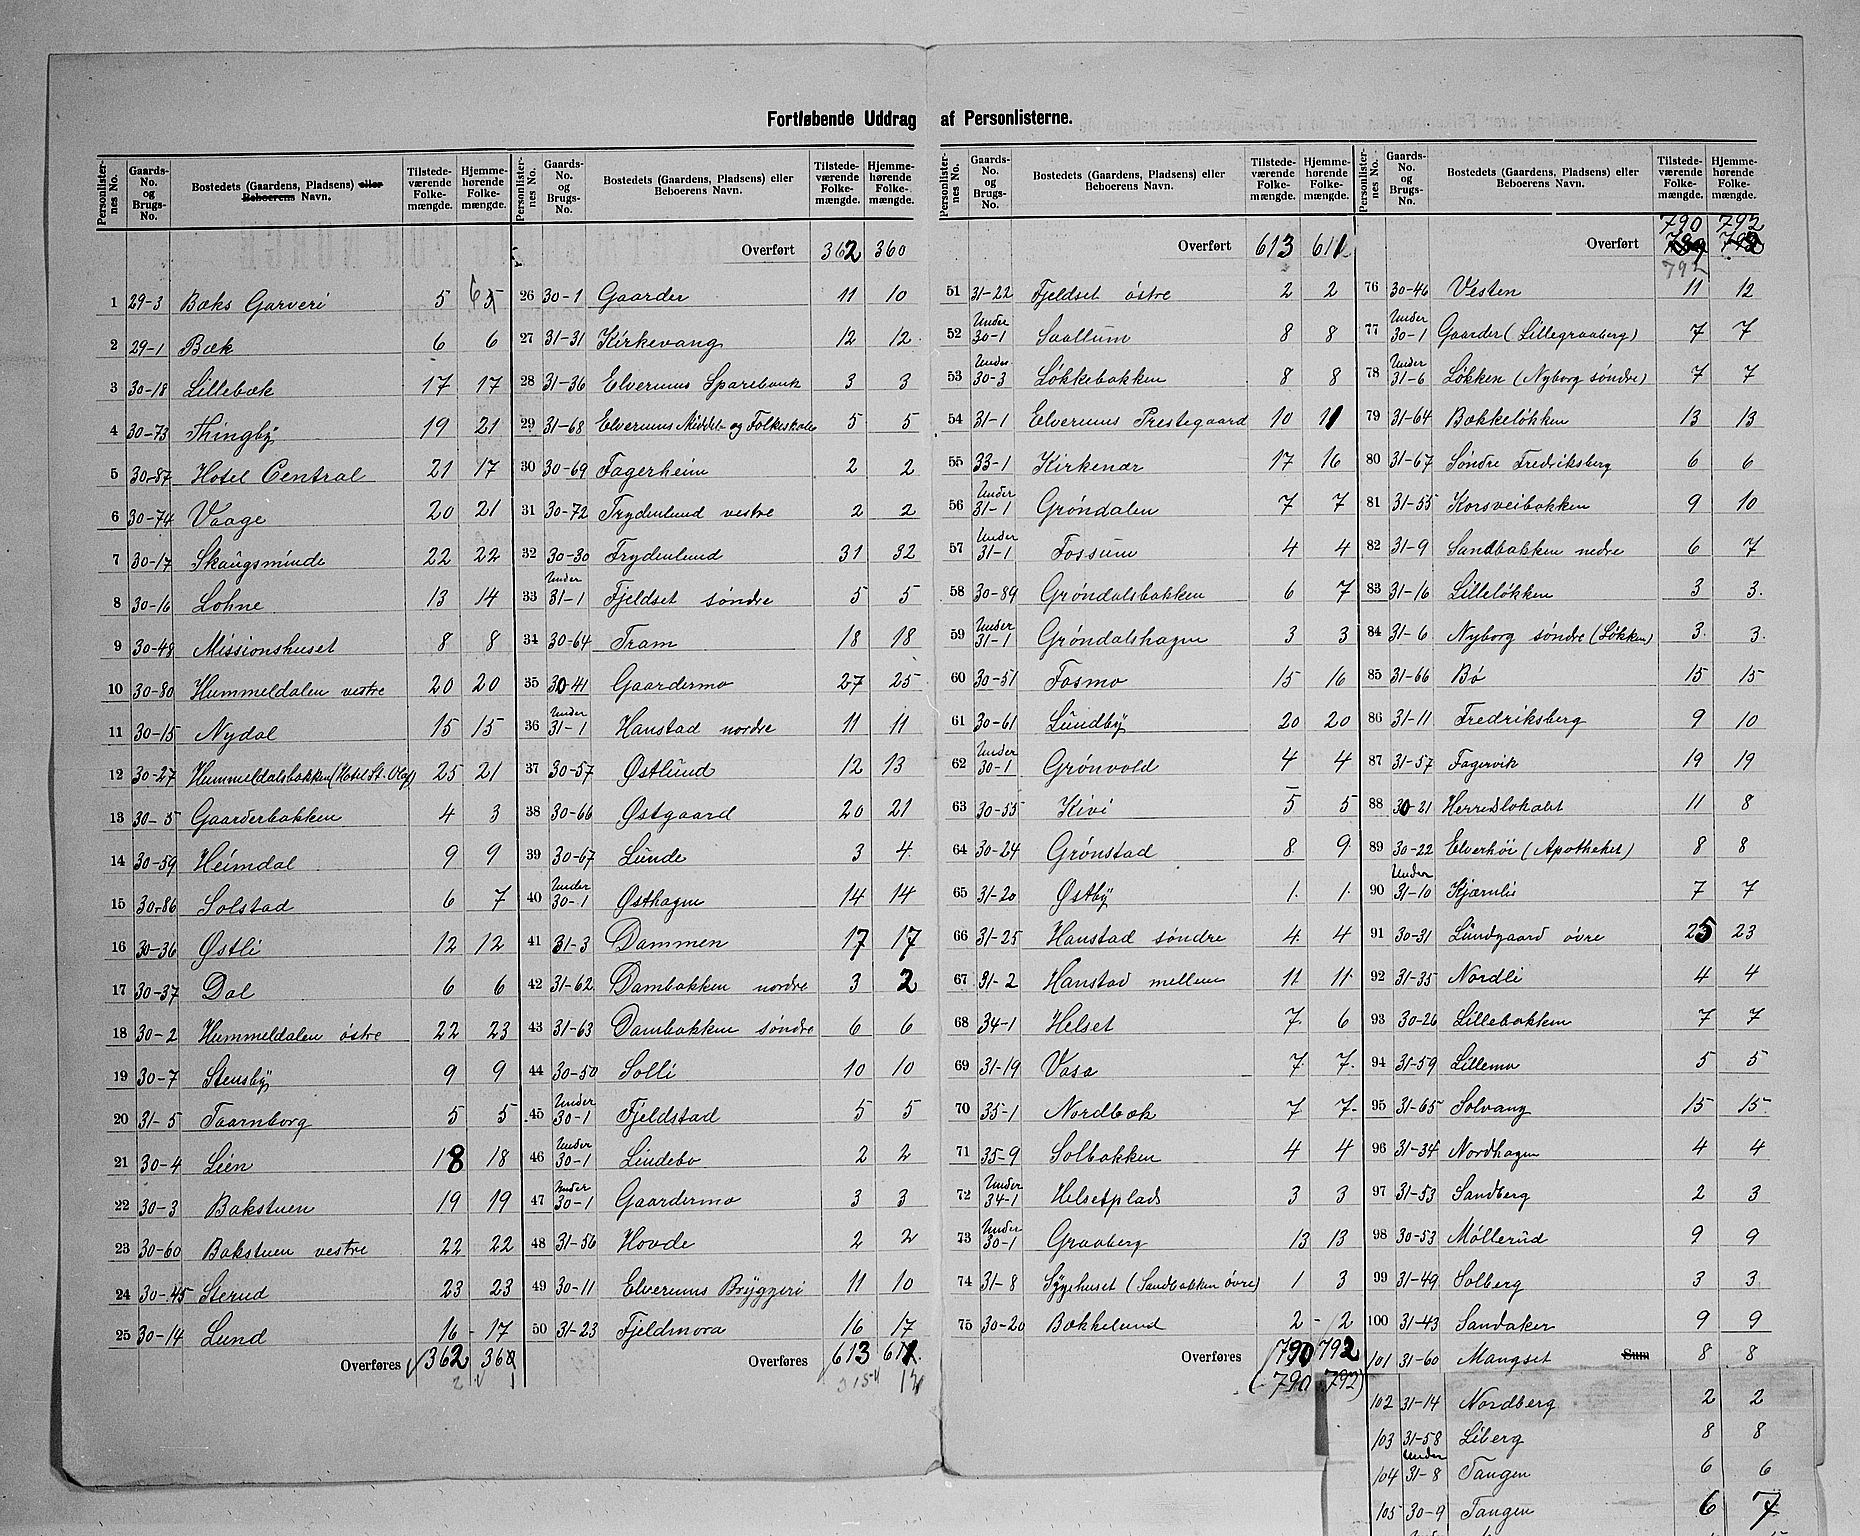 Fortløbende Uddrag af Personlisterne.
Personlister-nes No. | Gaards-No. og Brugs-No. | Bostedets (Gaardens, Pladsens) eller Beboerens Navn. | Tilstede-værende Folke-mængde. | Hjemme-hørende Folke-mængde.
1 29-3 Bæks Garveri 5 6
2 29-1 Bæk 6 6
3 30-18 Lillebæk 17 17
4 30-73 Thingby 19 21
5 30-87 Hotel Central 21 17
6 30-74 Vaage 20 21
7 30-17 Skaugsminde 22 22
8 30-16 Lohne 13 14
9 30-48 Missionshuset 8 8
10 30-80 Hummeldalen vestre 20 20
11 30-15 Nydal 15 15
12 30-27 Hummeldalsbakken (Hotel St. Olaf) 25 21
13 30-5 Gaarderbakken 4 3
14 30-59 Heimdal 9 9
15 30-86 Solstad 6 7
16 30-36 Østli 12 12
17 30-37 Dal 6 6
18 30-2 Hummeldalen østre 22 23
19 30-7 Stensby 9 9
20 31-5 Taarnborg 5 5
21 30-4 Lien 18 18
22 30-3 Bakstuen 19 19
23 30-60 Bakstuen vestre 22 22
24 30-45 Sterud 23 23
25 30-14 Lund 16 17
Overføres 362 360
Personlister-nes No. | Gaards-No. og Brugs-No. | Bostedets (Gaardens, Pladsens) eller Beboerens Navn. | Tilstede-værende Folke-mængde. | Hjemme-hørende Folke-mængde.
Overført 362 360
26 30-1 Gaarder 11 10
27 31-31 Kirkevang 12 12
28 31-36 Elverums Sparebank 3 3
29 31-68 Elverums Middel- og Folkeskole 5 5
30 30-69 Fagerheim 2 2
31 30-72 Frydenlund vestre 2 2
32 30-30 Frydenlund 31 32
33 Under 31-1 Fjeldset søndre 5 5
34 30-64 Fram 18 18
35 30-41 Gaardermo 27 25
36 Under 31-1 Hanstad nordre 11 11
37 30-57 Østlund 12 13
38 30-66 Østgaard 20 21
39 30-67 Lunde 3 4
40 Under 30-1 Østhagen 14 14
41 31-3 Dammen 17 17
42 31-62 Dambakken nordre 3 2
43 31-63 Dambakken søndre 6 6
44 30-50 Solli 10 10
45 Under 30-1 Fjeldstad 5 5
46 Under 30-1 Lindebo 2 2
47 Under 30-1 Gaardermo 3 3
48 31-56 Hovde 2 2
49 30-11 Elverums Bryggeri 11 10
50 31-23 Fjeldmora 16 17
Overføres 613 611
Personlister-nes No. | Gaards-No. og Brugs-No. | Bostedets (Gaardens, Pladsens) eller Beboerens Navn. | Tilstede-værende Folke-mængde. | Hjemme-hørende Folke-mængde.
Overført 613 611
51 31-22 Fjeldset østre 2 2
52 Under 30-1 Saallum 8 8
53 Under 30-3 Løkkebakken 8 8
54 31-1 Elverums Prestegaard 10 11
55 33-1 Kirkenær 17 16
56 Under 31-1 Grøndalen 7 7
57 Under 31-1 Fossum 4 4
58 30-89 Grøndalsbakken 6 7
59 Under 31-1 Grøndalshagen 3 3
60 30-51 Fosmo 15 16
61 30-61 Lundby 20 20
62 Under 30-1 Grønvold 4 4
63 30-55 Kivi 5 5
64 30-24 Grønstad 8 9
65 31-20 Østby 1 1
66 31-25 Hanstad søndre 4 4
67 31-2 Hanstad mellem 11 11
68 34-1 Helset 7 6
69 31-19 Vasa 7 7
70 35-1 Nordbæk 7 7
71 35-9 Solbakken 4 4
72 Under 34-1 Helsetplads 3 3
73 Under 30-1 Graaberg 13 13
74 31-8 Sygehuset (Sandbakken øvre) 1 3
75 30-20 Bækkelund 2 2
Overføres 790 792
(790 792)
Personlister-nes No. | Gaards-No. og Brugs-No. | Bostedets (Gaardens, Pladsens) eller Beboerens Navn. | Tilstede-værende Folke-mængde. | Hjemme-hørende Folke-mængde.
790 792
Overført
792
76 30-46 Vesten 11 12
77 Under 30-1 Gaarder (Lillegraaberg) 7 7
78 Under 31-6 Løkken (Nyborg søndre) 7 7
79 31-64 Bækkeløkken 13 13
80 31-67 Søndre Fredriksberg 6 6
81 31-55 Korsveibakken 9 10
82 31-9 Sandbakken nedre 6 7
83 31-16 Lilleløkken 3 3
84 31-6 Nyborg søndre (Løkken) 3 3
85 31-66 Bø 15 15
86 31-11 Fredriksberg 9 10
87 31-57 Fagervik 19 19
88 30-21 Herredslokalet 11 8
89 30-22 Elverhøi (Apotheket) 8 8
90 Under 31-10 Kjærnlie 7 7
91 30-31 Lundgaard øvre 25 23
92 31-35 Nordli 4 4
93 30-26 Lillebakken 7 7
94 31-59 Lillemo 5 5
95 31-65 Solvang 15 15
96 31-34 Nordhagen 4 4
97 31-53 Sandberg 2 3
98 30-53 Møllerud 9 9
99 31-49 Solberg 3 3
100 31-43 Sandaker 9 9
101 31-60 Mangset Sum 8 8
102 31-14 Nordberg 2 2
103 31-58 Liberg 8 8
104 Under 31-8 Tangen 6 6
105 30-9 Tangen 6 7